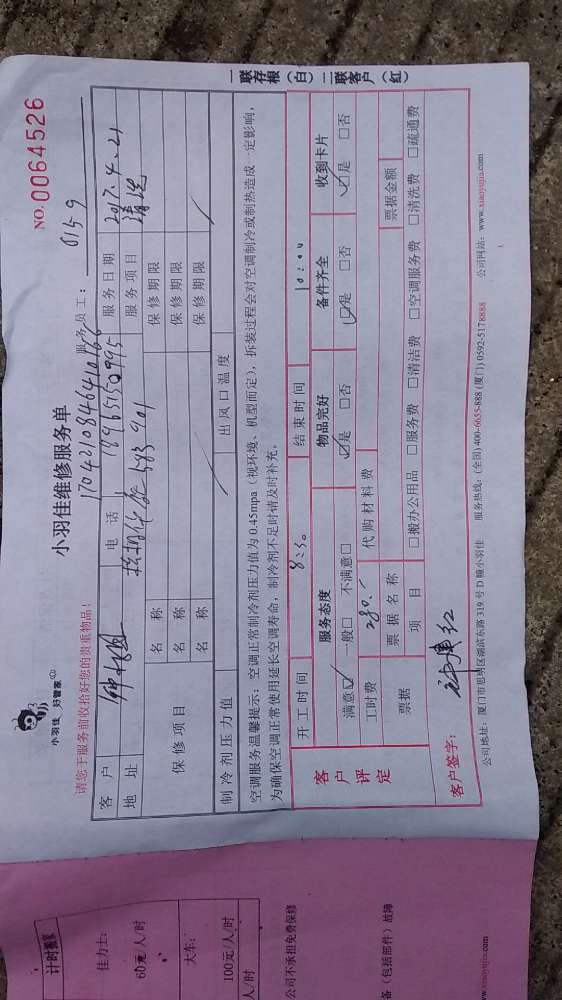 小羽佳 好管家
小羽佳维修服务单
NO.0064526
请您于服务前收拾好您的贵重物品！
服务员工： 0159
客户 电话 服务日期 2017.4.21
地址 服务项目 清洗
保修项目
名称 保修期限
名称 保修期限
名称 保修期限
制冷剂压力值 出风口温度
空调服务温馨提示：空调正常制冷剂压力值为0.45mpa（视环境、机型而定），拆装过程会对空调制冷或制热造成一定影响，
为确保空调正常使用延长空调寿命，制冷剂不足时请及时补充。
客户评定
开工时间 8:30 结束时间 10:00
服务态度 物品完好 备件齐全 收到卡片
满意☑ 一般□ 不满意□ ☑是 □否 ☑是 □否 ☑是 □否
工时费 280.- 代购材料费
票据 票据名称 票据金额
项目 □搬办公用品 □服务费 □清洁费 □空调服务费 □清洗费 □疏通费
客户签字：
公司地址：厦门市思明区湖滨东路319号D幢小羽佳 服务热线：(全国)400-6655-888 (厦门)0592-5178888 公司网站：www.xiaoyujia.com
一联存根（白）二联客户（红）
计时搬家
佳力士：
60元/人/时
大车：
100元/人/时
人/时
公司不承担免费保修
备（包括部件）故障
www.xiaoyujia.com